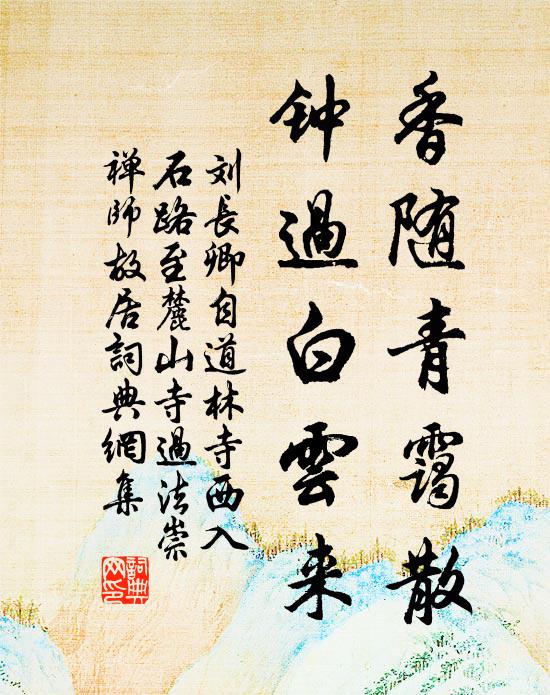 香随青靄散
钟過白雲来
刘長卿自道林寺西入
石路至麓山寺過法崇
禅师故居詞典網集
詞典
网印